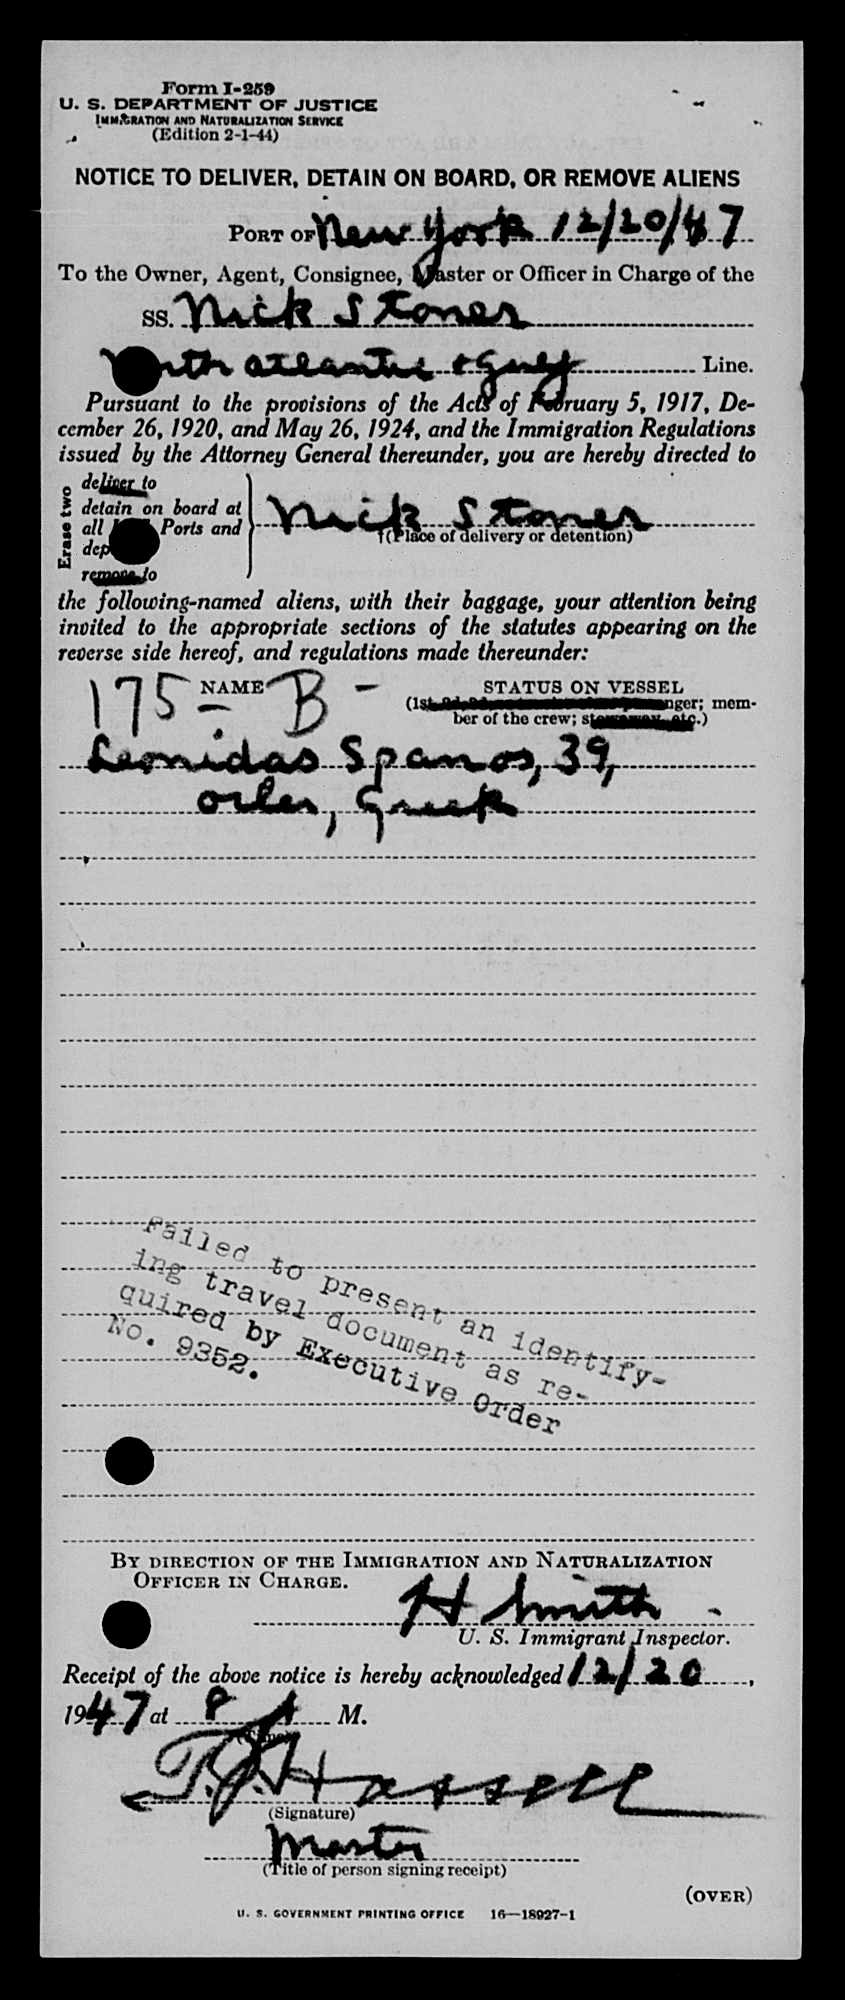 Form I-259
U. S. DEPARTMENT OF JUSTICE
IMMIGRATION AND NATURALIZATION SERVICE
(Edition 2-1-44)
NOTICE TO DELIVER, DETAIN ON BOARD, OR REMOVE ALIENS
PORT OF New York 12/20/47
To the Owner, Agent, Consignee, Master or Officer in Charge of the
SS. Nick Stoner
North Atlantic & Gulf Line.
Pursuant to the provisions of the Acts of February 5, 1917, De-
cember 26, 1920, and May 26, 1924, and the Immigration Regulations
issued by the Attorney General thereunder, you are hereby directed to
Erase two
deliver to
detain on board at
all Ports and
dep
remove to
Nick Stoner
†(Place of delivery or detention)
the following-named aliens, with their baggage, your attention being
invited to the appropriate sections of the statutes appearing on the
reverse side hereof, and regulations made thereunder:
175-B-
NAME STATUS ON VESSEL
(1st passenger; mem-
ber of the crew; stowaway, etc.)
Leonidas Spanos, 39,
oiler, Greek
Failed to present an identify-
ing travel document as re-
quired by Executive Order
No. 9352.
BY DIRECTION OF THE IMMIGRATION AND NATURALIZATION
OFFICER IN CHARGE.
H Smith
U. S. Immigrant Inspector.
Receipt of the above notice is hereby acknowledged 12/20,
1947 at 8 A M.
(Time)
T.J. Hassell
(Signature)
Master
(Title of person signing receipt)
(OVER)
U. S. GOVERNMENT PRINTING OFFICE 16—18927-1